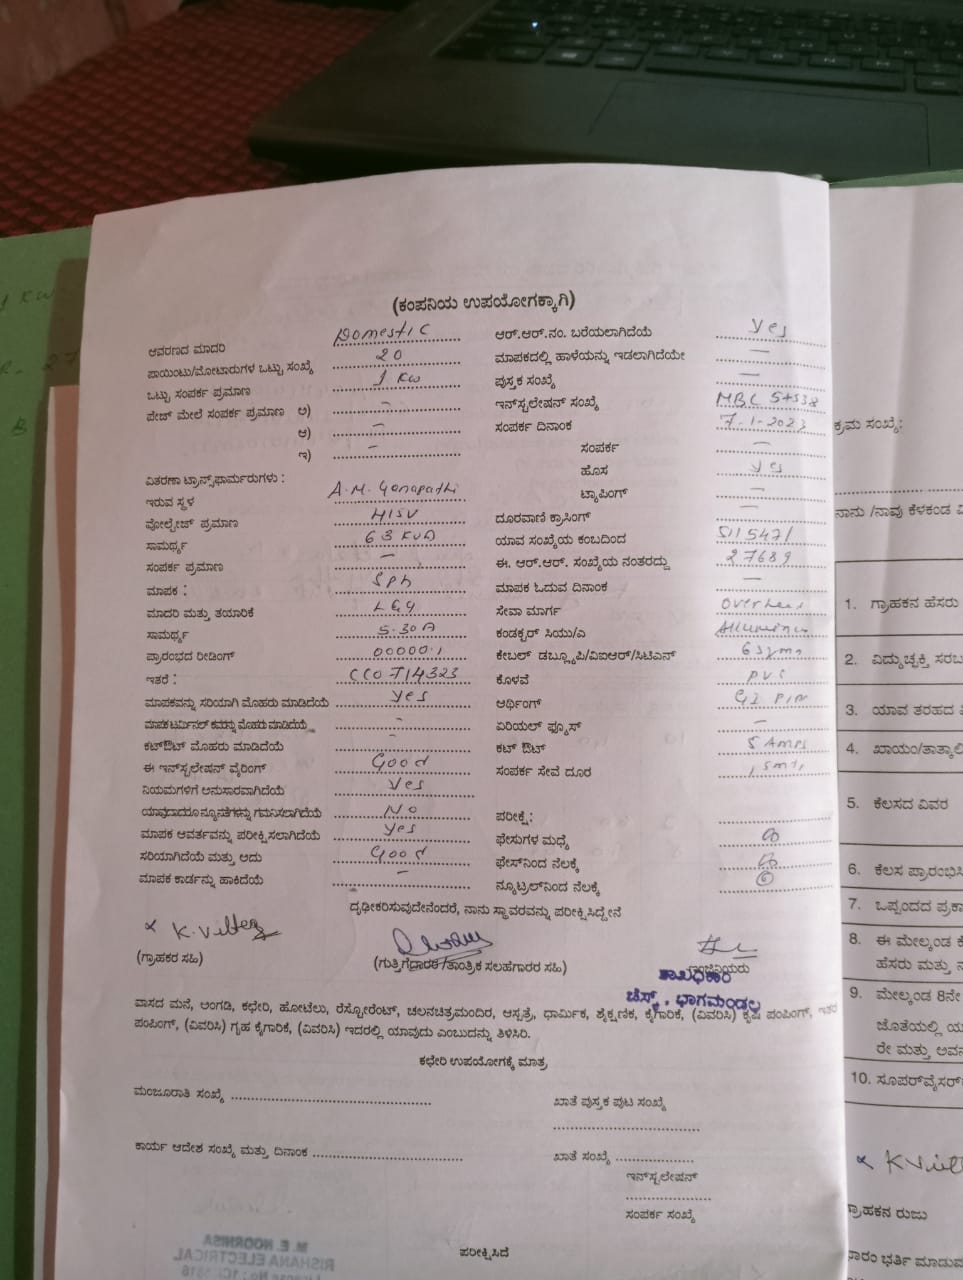 (ಕಂಪನಿಯ ಉಪಯೋಗಕ್ಕಾಗಿ)
ಆವರಣದ ಮಾದರಿ Domestic
ಪಾಯಿಂಟು/ಮೋಟಾರುಗಳ ಒಟ್ಟು ಸಂಖ್ಯೆ 20
ಒಟ್ಟು ಸಂಪರ್ಕ ಪ್ರಮಾಣ 1 KW
ಪೇಜ್ ಮೇಲೆ ಸಂಪರ್ಕ ಪ್ರಮಾಣ ಅ) –
ಆ) –
ಇ) –
ವಿತರಣಾ ಟ್ರಾನ್ಸ್‌ಫಾರ್ಮರುಗಳು :
ಇರುವ ಸ್ಥಳ A.M. Ganapathi
ವೋಲ್ಟೇಜ್ ಪ್ರಮಾಣ
ಸಾಮರ್ಥ್ಯ 63 KVA
ಸಂಪರ್ಕ ಪ್ರಮಾಣ –
ಮಾಪಕ : SPh
ಮಾದರಿ ಮತ್ತು ತಯಾರಿಕೆ L&G
ಸಾಮರ್ಥ್ಯ 5-30A
ಪ್ರಾರಂಭದ ರೀಡಿಂಗ್ 00000.1
ಇತರೆ :
ಮಾಪಕವನ್ನು ಸರಿಯಾಗಿ ಮೊಹರು ಮಾಡಿದೆಯೆ Yes
ಮಾಪಕ ಟರ್ಮಿನಲ್ ಕವರನ್ನು ಮೊಹರು ಮಾಡಿದೆಯೆ –
ಕಟ್‌ಔಟ್ ಮೊಹರು ಮಾಡಿದೆಯೆ –
ಈ ಇನ್‌ಸ್ಟಲೇಷನ್ ವೈರಿಂಗ್ Good
ನಿಯಮಗಳಿಗೆ ಅನುಸಾರವಾಗಿದೆಯೆ Yes
ಯಾವುದಾದರೂ ನ್ಯೂನತೆಗಳನ್ನು ಗಮನಿಸಲಾಗಿದೆಯೆ No
ಮಾಪಕ ಆವರ್ತವನ್ನು ಪರೀಕ್ಷಿಸಲಾಗಿದೆಯೆ Yes
ಸರಿಯಾಗಿದೆಯೆ ಮತ್ತು ಅದು Good
ಮಾಪಕ ಕಾರ್ಡನ್ನು ಹಾಕಿದೆಯೆ –
ಆರ್.ಆರ್.ನಂ. ಬರೆಯಲಾಗಿದೆಯೆ Yes
ಮಾಪಕದಲ್ಲಿ ಹಾಳೆಯನ್ನು ಇಡಲಾಗಿದೆಯೇ –
ಪುಸ್ತಕ ಸಂಖ್ಯೆ –
ಇನ್‌ಸ್ಟಲೇಷನ್ ಸಂಖ್ಯೆ
ಸಂಪರ್ಕ ದಿನಾಂಕ 7-1-2023
ಸಂಪರ್ಕ –
ಹೊಸ Yes
ಟ್ಯಾಪಿಂಗ್ –
ದೂರವಾಣಿ ಕ್ರಾಸಿಂಗ್ –
ಯಾವ ಸಂಖ್ಯೆಯ ಕಂಬದಿಂದ
ಈ. ಆರ್.ಆರ್. ಸಂಖ್ಯೆಯ ನಂತರದ್ದು 27689
ಮಾಪಕ ಓದುವ ದಿನಾಂಕ –
ಸೇವಾ ಮಾರ್ಗ
ಕಂಡಕ್ಟರ್ ಸಿಯು/ಎ
ಕೇಬಲ್ ಡಬ್ಲ್ಯೂಪಿ/ವಿಐಆರ್/ಸಿಟಿಎಸ್
ಕೊಳವೆ PVC
ಅರ್ಥಿಂಗ್ GI Pin
ಏರಿಯಲ್ ಫ್ಯೂಸ್ –
ಕಟ್ ಔಟ್ 5 Amps
ಸಂಪರ್ಕ ಸೇವೆ ದೂರ
ಪರೀಕ್ಷೆ:
ಫೇಸುಗಳ ಮಧ್ಯೆ
ಫೇಸ್‌ನಿಂದ ನೆಲಕ್ಕೆ
ನ್ಯೂಟ್ರಲ್‌ನಿಂದ ನೆಲಕ್ಕೆ
ದೃಢೀಕರಿಸುವುದೇನೆಂದರೆ, ನಾನು ಸ್ಥಾವರವನ್ನು ಪರೀಕ್ಷಿಸಿದ್ದೇನೆ
(ಗ್ರಾಹಕರ ಸಹಿ)
(ಗುತ್ತಿಗೆದಾರರ/ತಾಂತ್ರಿಕ ಸಲಹೆಗಾರರ ಸಹಿ)
ಶಾಖಾಧಿಕಾರಿ
ಚೆಸ್ಕ್, ಭಾಗಮಂಡಲ
ವಾಸದ ಮನೆ, ಅಂಗಡಿ, ಕಛೇರಿ, ಹೋಟೆಲು, ರೆಸ್ಟೋರೆಂಟ್, ಚಲನಚಿತ್ರಮಂದಿರ, ಆಸ್ಪತ್ರೆ, ಧಾರ್ಮಿಕ, ಶೈಕ್ಷಣಿಕ, ಕೈಗಾರಿಕೆ, (ವಿವರಿಸಿ) ಕೃಷಿ ಪಂಪಿಂಗ್, ಇತರ
ಪಂಪಿಂಗ್, (ವಿವರಿಸಿ) ಗೃಹ ಕೈಗಾರಿಕೆ, (ವಿವರಿಸಿ) ಇದರಲ್ಲಿ ಯಾವುದು ಎಂಬುದನ್ನು ತಿಳಿಸಿರಿ.
ಕಛೇರಿ ಉಪಯೋಗಕ್ಕೆ ಮಾತ್ರ
ಮಂಜೂರಾತಿ ಸಂಖ್ಯೆ
ಖಾತೆ ಪುಸ್ತಕ ಪುಟ ಸಂಖ್ಯೆ
ಕಾರ್ಯ ಆದೇಶ ಸಂಖ್ಯೆ ಮತ್ತು ದಿನಾಂಕ
ಖಾತೆ ಸಂಖ್ಯೆ
ಇನ್‌ಸ್ಟಲೇಷನ್
ಸಂಪರ್ಕ ಸಂಖ್ಯೆ
ಪರೀಕ್ಷಿಸಿದೆ
ಕ್ರಮ ಸಂಖ್ಯೆ:
ನಾನು /ನಾವು ಕೆಳಕಂಡ
1. ಗ್ರಾಹಕನ ಹೆಸರು
2. ವಿದ್ಯುಚ್ಛಕ್ತಿ
3. ಯಾವ ತರಹದ
4. ಖಾಯಂ/ತಾತ್ಕಾಲಿ
5. ಕೆಲಸದ ವಿವರ
6. ಕೆಲಸ
7. ಒಪ್ಪಂದದ
8. ಈ ಮೇಲ್ಕಂಡ
ಹೆಸರು ಮತ್ತು
9. ಮೇಲ್ಕಂಡ 8ನೇ
ಜೊತೆಯಲ್ಲಿ
ರೇ ಮತ್ತು
10. ಸೂಪರ್‌ವೈಸರ್
ಗ್ರಾಹಕನ ರುಜು